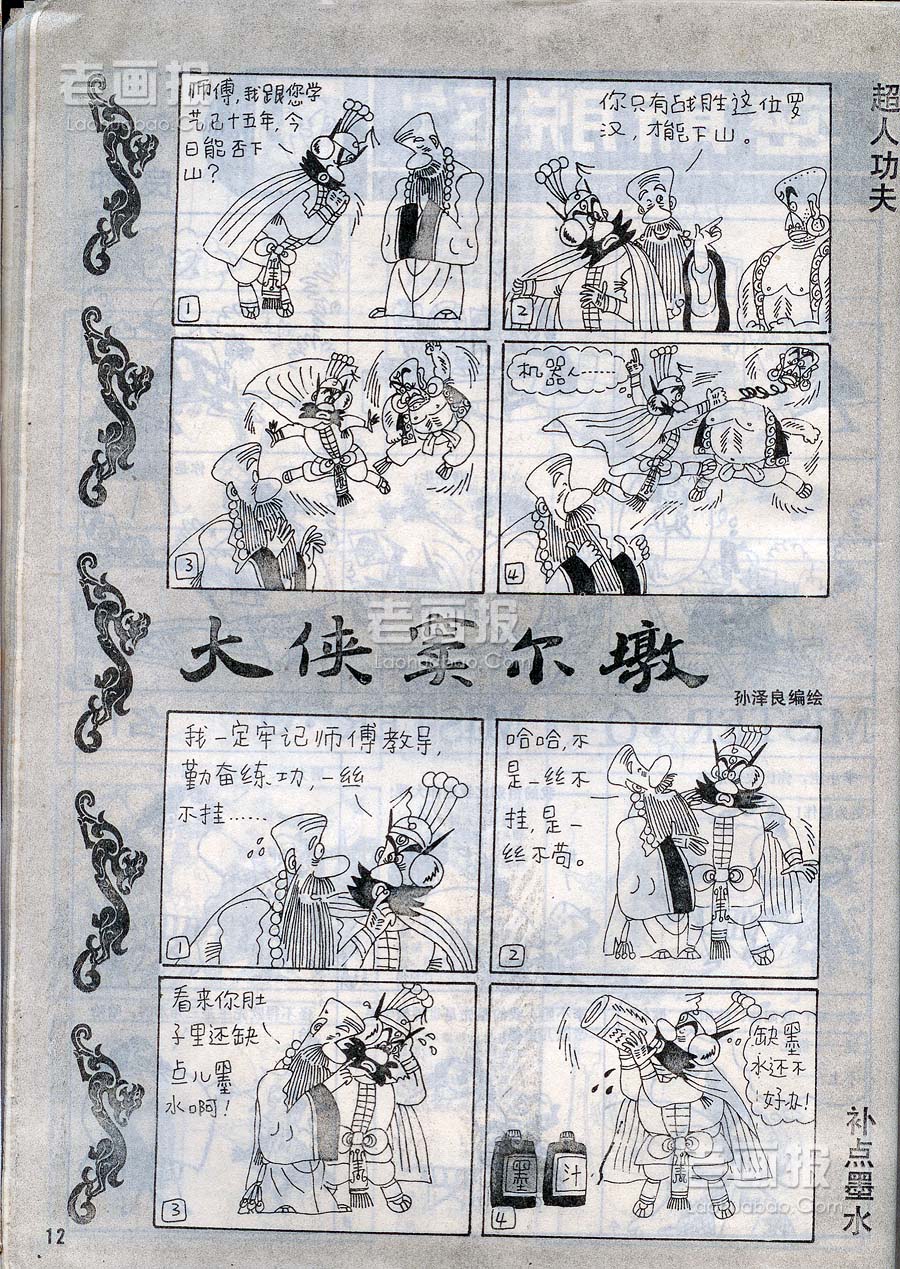 老画报
Laohuabao.Com
超人功夫
师傅，我跟您学
艺已十五年，今
日能否下
山？
1
你只有战胜这位罗
汉，才能下山。
2
3
机器人……
4
大侠窦尔墩
老画报
Laohuabao.Com
孙泽良编绘
我一定牢记师傅教导，
勤奋练功，一丝
不挂……
1
哈哈，不
是一丝不
挂，是一
丝不苟。
2
看来你肚
子里还缺
点儿墨
水啊！
3
缺墨
水还不
好办！
墨
汁
4
补点墨水
老画报
Laohuabao.Com
12